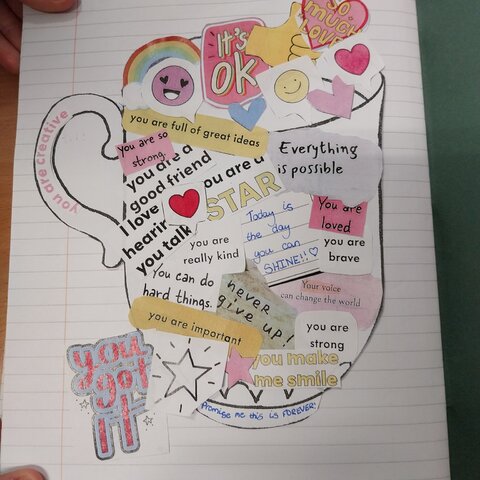 SO
MUCH
LOVE
IT'S
OK
you are creative
you are full of great ideas
you are so
strong
you are a
good friend
I love
hearing
you talk
you are a
STAR
Everything
is possible
Today is
the day
you can
SHINE!!
You are
loved
you are
brave
you are
really kind
You can do
hard things.
never
give up!
Your voice
can change the world
you are important
you are
strong
you got
it
you make
me smile
Promise me this is FOREVER!